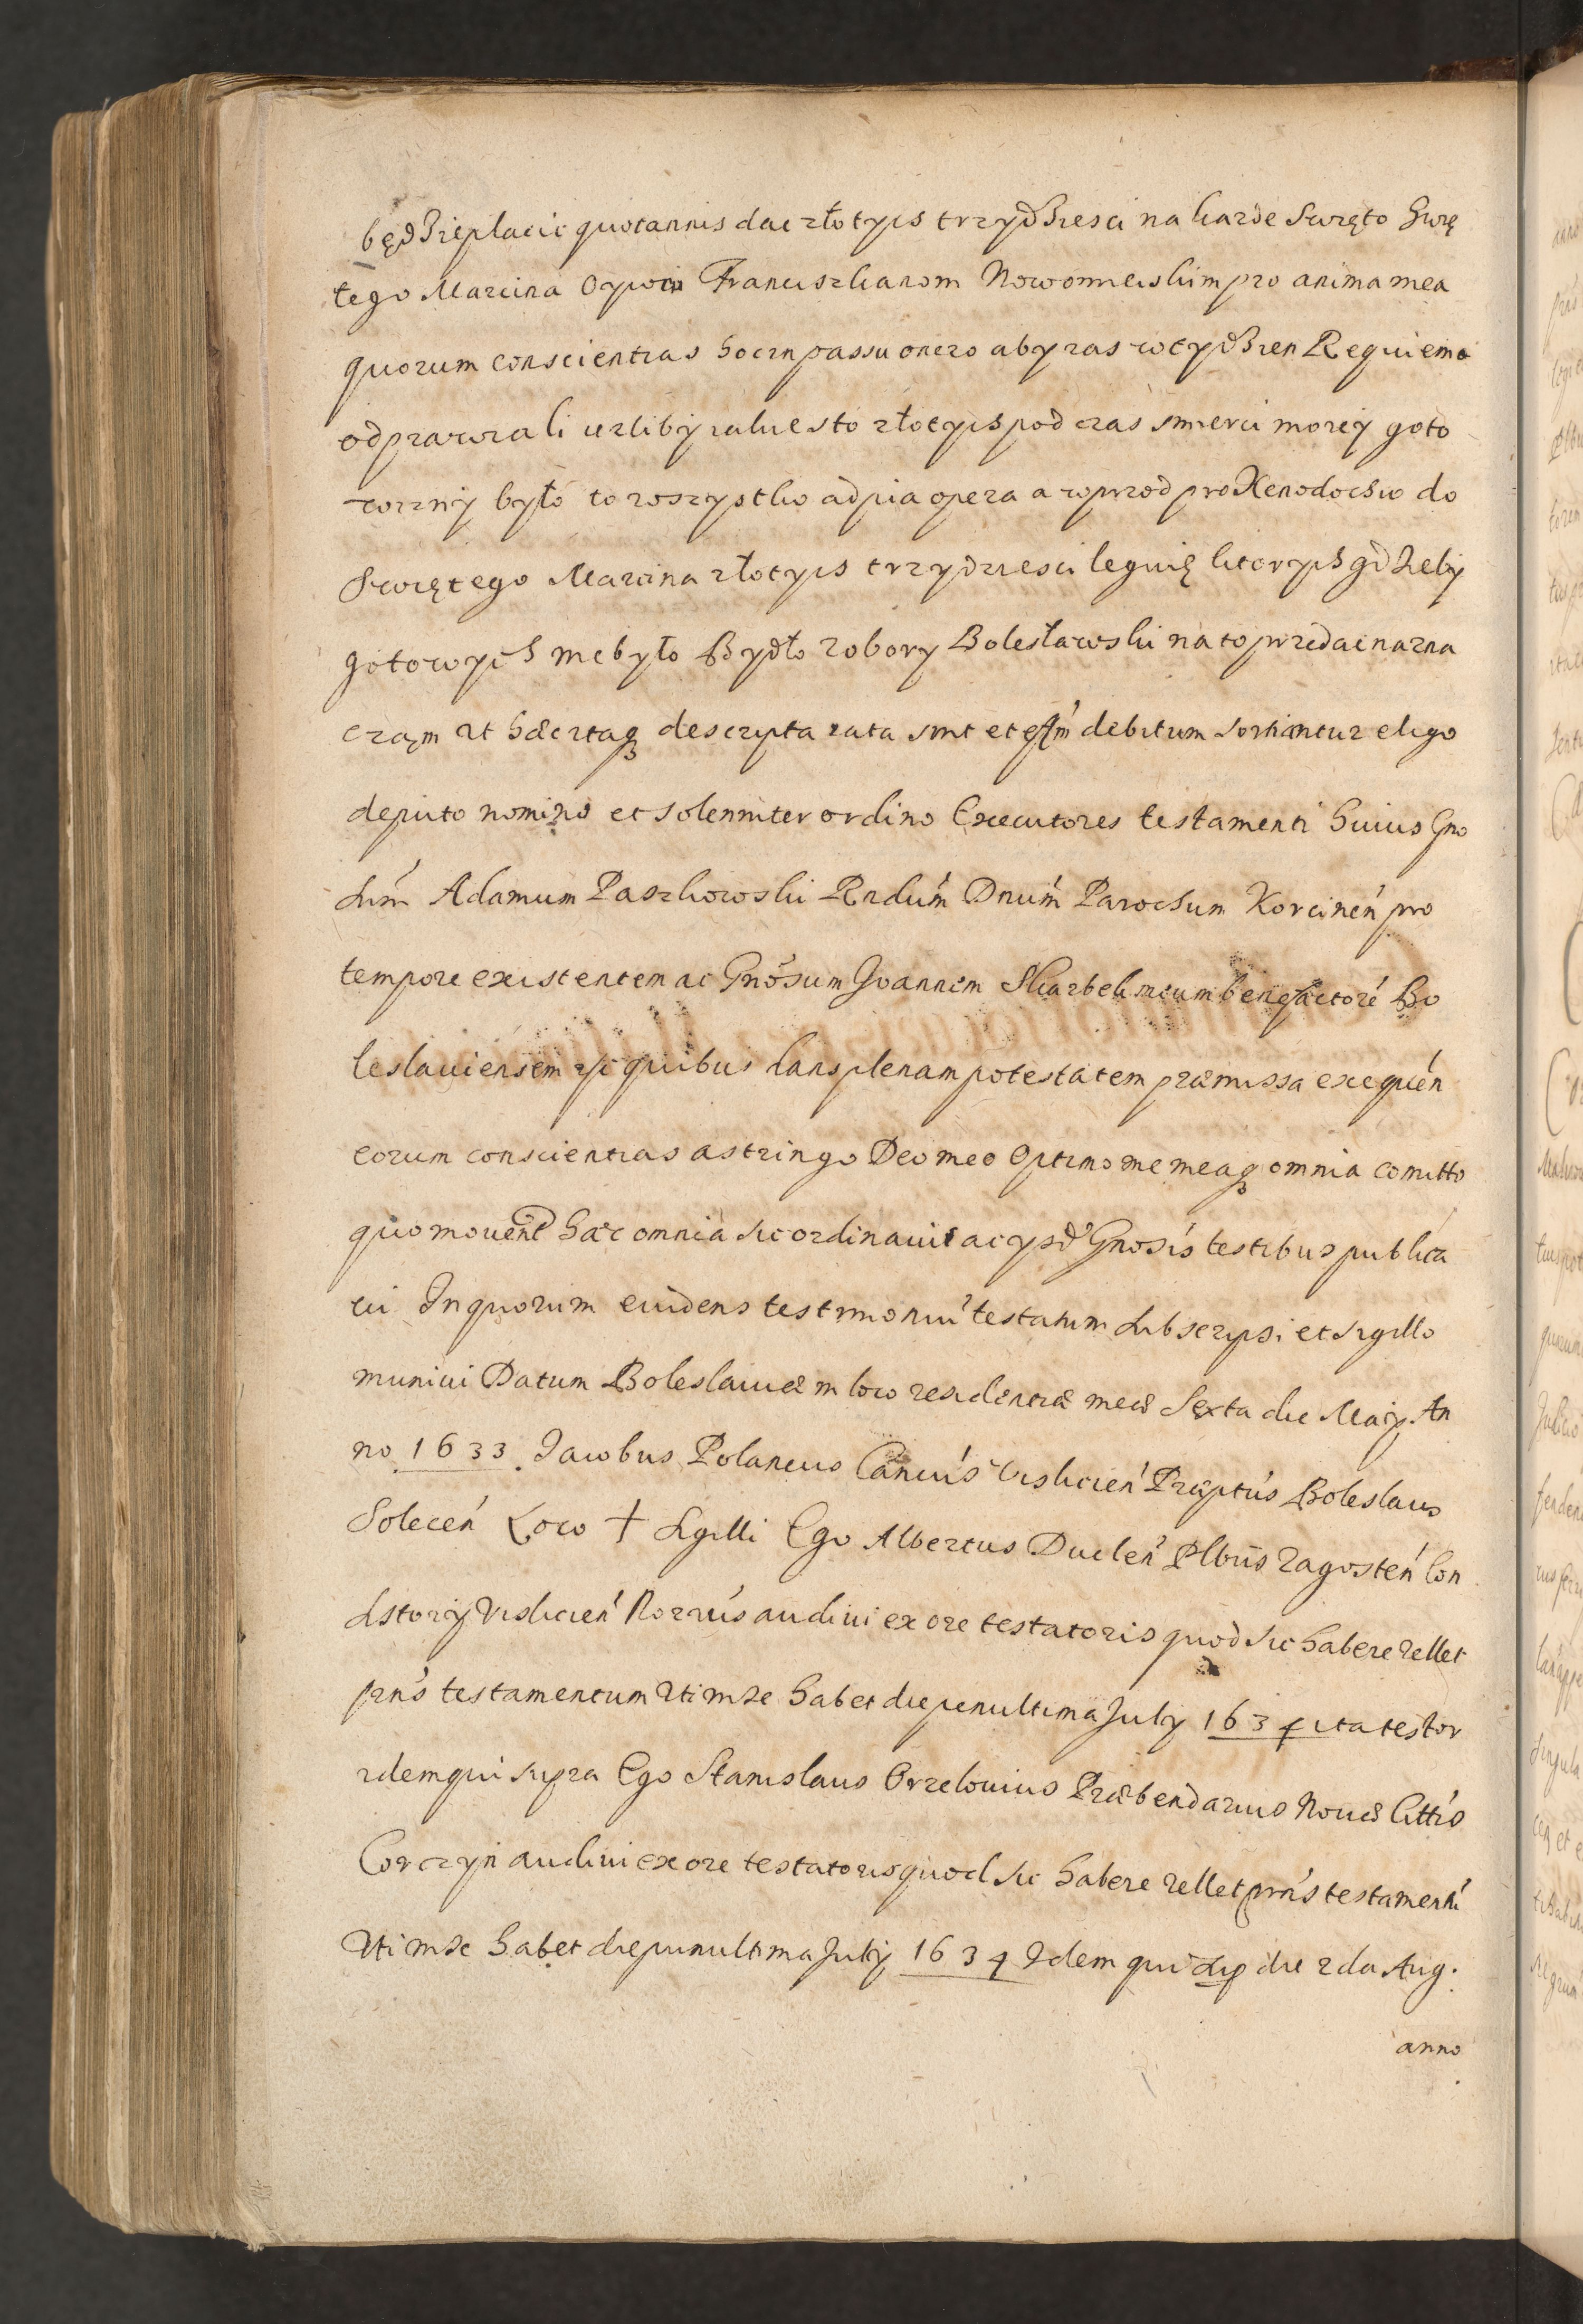 będzie płacic quotannis dac złotych trzydziesci na kazde Swięto Swię
tego Marcina Oycom Franciszkanom Nowomieiskim pro anima mea
quorum conscientias hoc in passu onero aby raz w tydzien Requiem
odprawiali iezliby iakie sto złotych pod czas smierci moiey goto
wizny było to wszystko ad pia opera a wprzod pro Xenodochio do
Swiętego Marcina złotych trzydziesci leguię ktorych gdzieby
gotowych niebyło Bydło z obory Bolesławski na to przedac nazna
cząm Ut hæc itaq descripta rata sint et eff'm debitum sortiantur eligo
deputo nomino et solenniter ordino Executores testamenti huius Gno
sum Adamum Paszkowski Rndum Dnum Parochum Korcinen pro
tempore existentem ac Gnosum Joannem Skarbek meum benefactore Bo
leslauiensem etc quibus dans plenam potestatem præmissa exequen
eorum conscientias astringo Deo meo Optimo me meaq omnia comitto
quo mouente hæc omnia sic ordinaui ac ypsd Gnosis testibus publica
ui In quorum euidens testimoniu testatum subscripsi et sigillo
muniui Datum Boleslauiæ in loco residentiæ meæ Sexta die Maij An
no 1633 Jacobus Polaneus Cancus Vislicien Præptus Boleslauo
Solecen Loco + Sigilli Ego Albertus Duclen Plbus Zagosten Con
sistorij Vislicien Norrius audiui ex ore testatoris quod sic habere vellet
prns testamentum Uti in se habet die penultima July 1634 ita testor
idem qui supra Ego Stanislaus Orzelouius Præbendarius Nouæ Cittis
Corczyn audiui ex ore testatoris quod sic habere vellet prns testamentu
Uti in se habet die punultima July 1634 Idem qui sup die 2da Aug.
anno